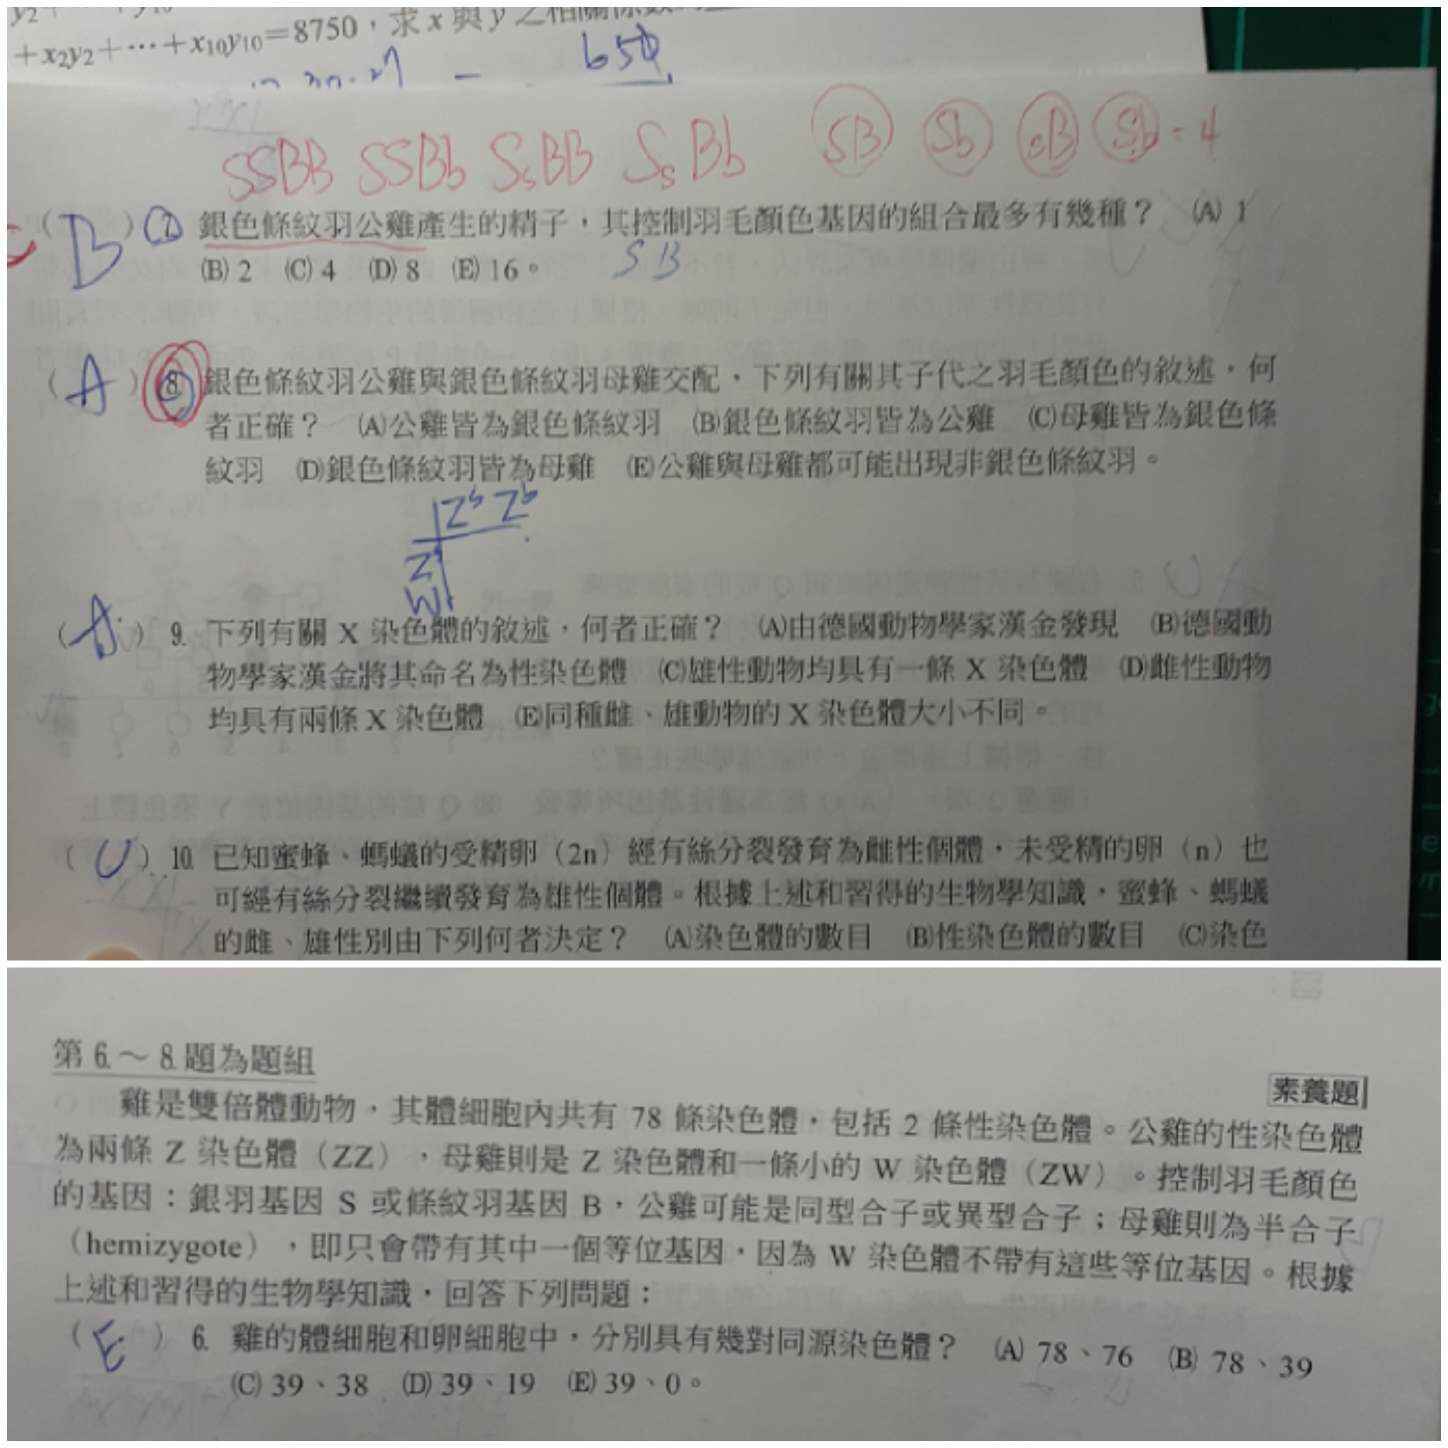 +x2y2+⋯+x10y10=8750，求 x 與 y 之相關係數
650
SSBB SSBb SsBB SsBb SB Sb sB Sb = 4
(B) 7. 銀色條紋羽公雞產生的精子，其控制羽毛顏色基因的組合最多有幾種？ (A) 1
(B) 2 (C) 4 (D) 8 (E) 16。
SB
(A) 8. 銀色條紋羽公雞與銀色條紋羽母雞交配，下列有關其子代之羽毛顏色的敘述，何
者正確？ (A)公雞皆為銀色條紋羽 (B)銀色條紋羽皆為公雞 (C)母雞皆為銀色條
紋羽 (D)銀色條紋羽皆為母雞 (E)公雞與母雞都可能出現非銀色條紋羽。
(A) 9. 下列有關 X 染色體的敘述，何者正確？ (A)由德國動物學家漢金發現 (B)德國動
物學家漢金將其命名為性染色體 (C)雄性動物均具有一條 X 染色體 (D)雌性動物
均具有兩條 X 染色體 (E)同種雌、雄動物的 X 染色體大小不同。
(C) 10. 已知蜜蜂、螞蟻的受精卵（2n）經有絲分裂發育為雌性個體，未受精的卵（n）也
可經有絲分裂繼續發育為雄性個體。根據上述和習得的生物學知識，蜜蜂、螞蟻
的雌、雄性別由下列何者決定？ (A)染色體的數目 (B)性染色體的數目 (C)染色
第 6.～ 8. 題為題組
素養題
雞是雙倍體動物，其體細胞內共有 78 條染色體，包括 2 條性染色體。公雞的性染色體
為兩條 Z 染色體（ZZ），母雞則是 Z 染色體和一條小的 W 染色體（ZW）。控制羽毛顏色
的基因：銀羽基因 S 或條紋羽基因 B，公雞可能是同型合子或異型合子；母雞則為半合子
（hemizygote），即只會帶有其中一個等位基因，因為 W 染色體不帶有這些等位基因。根據
上述和習得的生物學知識，回答下列問題：
(E) 6. 雞的體細胞和卵細胞中，分別具有幾對同源染色體？ (A) 78、76 (B) 78、39
(C) 39、38 (D) 39、19 (E) 39、0。